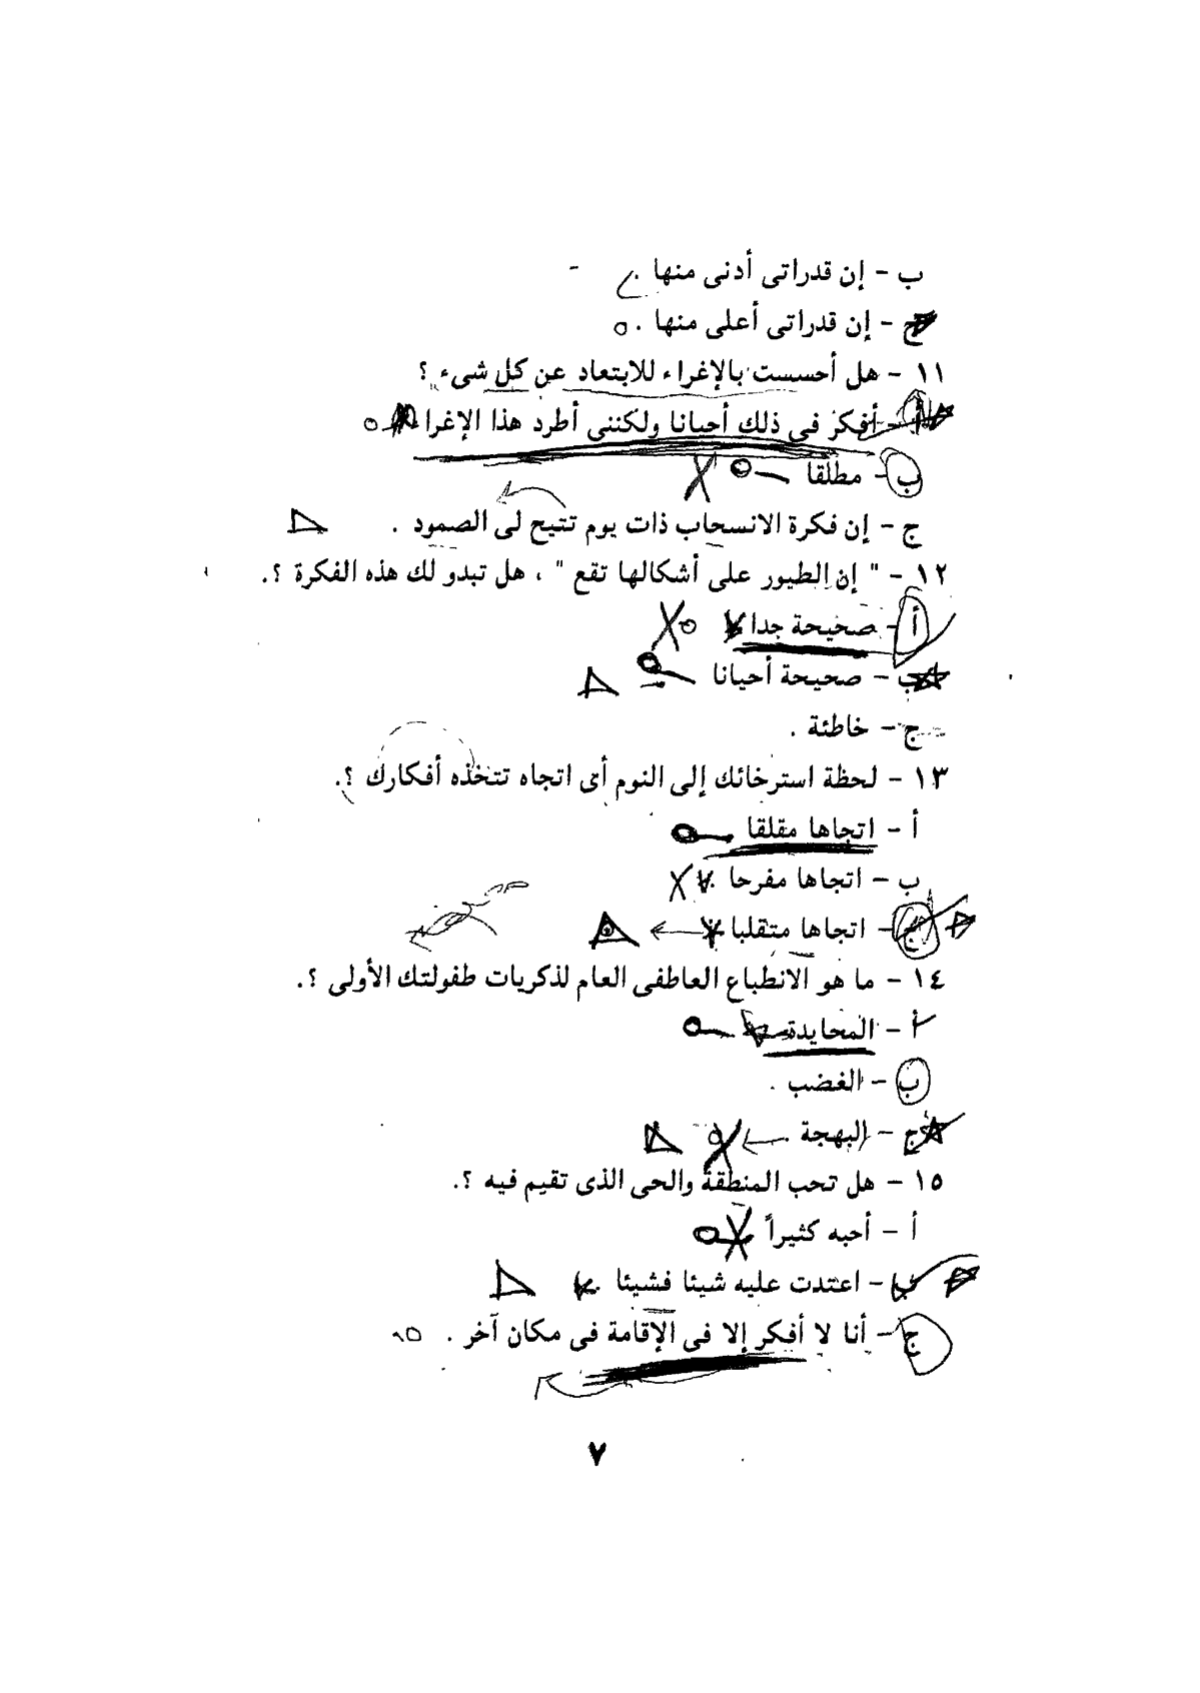 ب - إن قدراتى أدنى منها .
ج - إن قدراتى أعلى منها .
١١ - هل أحسست بالإغراء للابتعاد عن كل شىء ؟
أ - أفكر فى ذلك أحيانا ولكننى أطرد هذا الإغراء
ب - مطلقا
ج - إن فكرة الانسحاب ذات يوم تتيح لى الصمود .
١٢ - " إن الطيور على أشكالها تقع " ، هل تبدو لك هذه الفكرة ؟.
أ - صحيحة جدا
ب - صحيحة أحيانا
ج - خاطئة .
١٣ - لحظة استرخائك إلى النوم أى اتجاه تتخذه أفكارك ؟.
أ - اتجاها مقلقا
ب - اتجاها مفرحا .
ج - اتجاها متقلبا
١٤ - ما هو الانطباع العاطفى العام لذكريات طفولتك الأولى ؟.
أ - المحايدة
ب - الغضب .
ج - البهجة .
١٥ - هل تحب المنطقة والحى الذى تقيم فيه ؟.
أ - أحبه كثيراً
ب - اعتدت عليه شيئا فشيئا .
ج - أنا لا أفكر إلا فى الإقامة فى مكان آخر .
٧